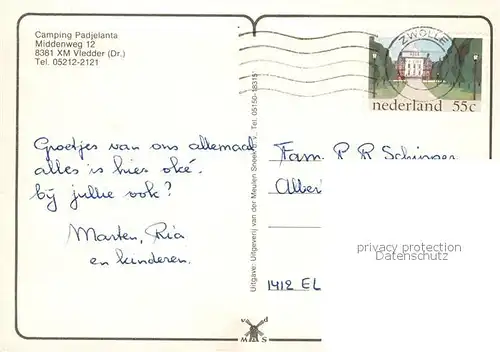 Camping Padjelanta
Middenweg 12
8381 XM Vledder (Dr.)
Tel. 05212-2121
ZWOLLE
nederland 55c
Groetjes van ons allemaal
alles is hier oké.
bij jullie ook?
Marten, Ria
en kinderen.
Uitgave: Uitgeverij van der Meulen Sneek b.v. Tel. 05150-18315
Fam. P R Schinger
Alber
1412 EL
privacy protection
Datenschutz
v d
M S